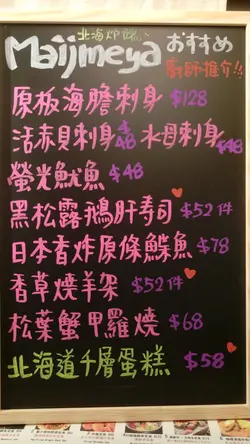 北海炸雞
Maijmeya おすすめ
廚師推介!!
原板海膽刺身 $128
活赤貝刺身 $48 水母刺身 $48
螢光魷魚 $48
黑松露鵝肝寿司 $52/件
日本香炸原條鰈魚 $78
香草燒羊架 $52/件
松葉蟹甲羅燒 $68
北海道千層蛋糕 $58